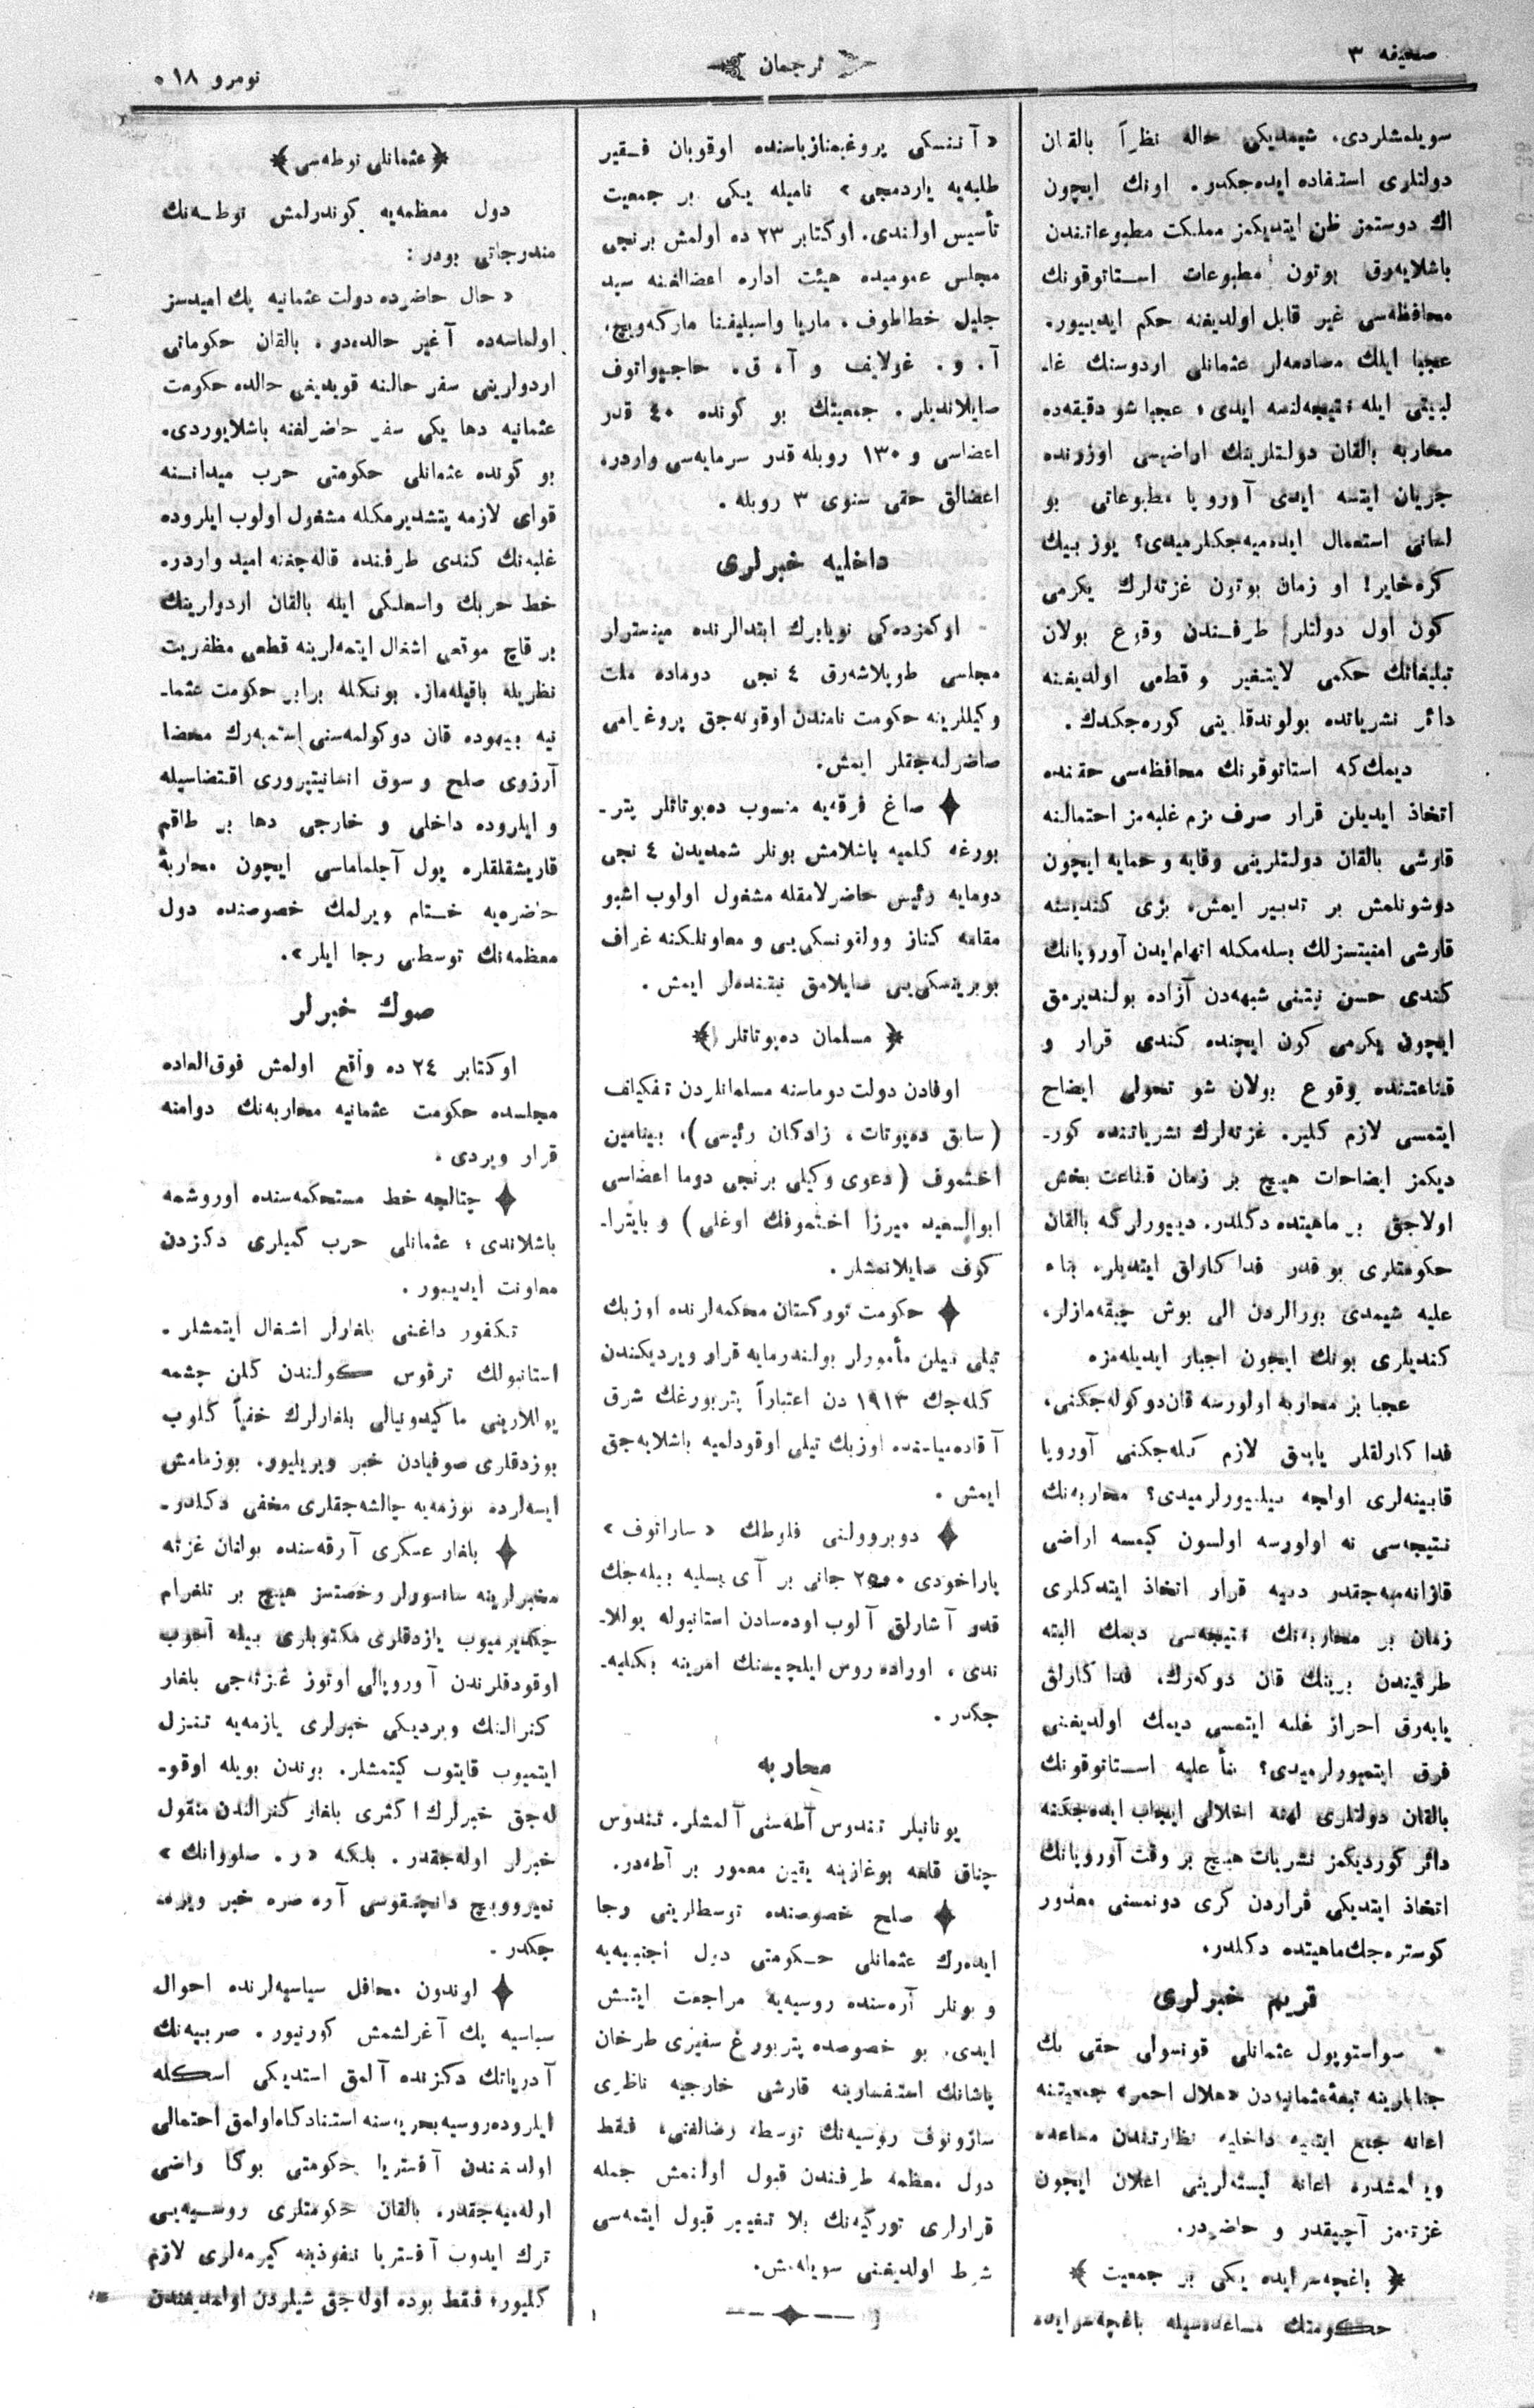 صحیفه ٣
ترجمان
نومرو ١٨ ٥
سویلمشلردی. شیمدیكی حاله نظراً بالقان
دولتلری استفاده ایده‌جكدر. اونك ایچون
اك دوستمز ظن ایتدیكمز مملكت مطبوعاتندن
باشلایه‌رق بوتون مطبوعات استاتوقونك
محافظه‌سی غیر قابل اولدیغنه حكم ایدییور.
عجبا ایلك مصادمه‌لر عثمانلی اردوسنك غا-
لبیتی ایله نتیجه‌لنسه ایدی؛ عجبا شو دقیقه‌ده
محاربه بالقان دولتلرینك اراضیسی اوزرنده
جریان ایتسه ایدی آوروپا مطبوعاتی بو
لسانی استعمال ایده‌میه‌جكلرمیدی؟ یوز بیك
كره خایر! او زمان بوتون غزته‌لرك یكرمی
كون اول دولتلر طرفندن وقوع بولان
تبلیغاتك حكمی لایتغیر و قطعی اولدیغنه
دائر نشریاتده بولوندقلرینی كوره‌جكدك.
دیمك‌كه استاتوقونك محافظه‌سی حقنده
اتخاذ ایدیلن قرار صرف بزم غلبه‌مز احتمالنه
قارشی بالقان دولتلرینی وقایه و حمایه ایچون
دوشونلمش بر تدبیر ایمش. بزی كندیسنه
قارشی امنیتسزلك بسله‌مكله اتهام ایدن آوروپانك
كندی حسن نیتنی شبهه‌دن آزاده بولندیرمق
ایچون یكرمی كون ایچنده كندی قرار و
قناعتنده وقوع بولان شو تحولی ایضاح
ایتمسی لازم كلیر. غزته‌لرك نشریاتنده كور-
دیكمز ایضاحات هیچ بر زمان قناعت بخش
اولاجق بر ماهیتده دكلدر. دییورلركه بالقان
حكومتلری بو قدر فدا كارلق ایتدیلر. بناء
علیه شیمدی بورالردن الی بوش چیقه‌مازلر،
كندیلری بونك ایچون اجبار ایدیله‌مز.
عجبا بر محاربه اولورسه قان دوكوله‌جكنی،
فدا كارلقلر یاپمق لازم كله‌جكنی آوروپا
قابینه‌لری اولجه بیلیورلرمیدی؟ محاربه‌نك
نتیجه‌سی نه اولورسه اولسون كیمسه اراضی
قازانه‌میه‌جقدر دییه قرار اتخاذ ایتدكلری
زمان بر محاربه‌نك نتیجه‌سی دیمك البته
طرفیندن برینك قان دوكه‌رك، فدا كارلق
یاپه‌رق احراز غلبه ایتمسی دیمك اولدیغنی
فرق ایتمیورلرمیدی؟ بناً علیه استاتوقونك
بالقان دولتلری لهنه اخلالی ایجاب ایده‌جكنه
دائر كوردیكمز نشریات هیچ بر وقت آوروپانك
اتخاذ ایتدیكی قراردن كری دونمسنی معذور
كوستره‌جك ماهیتده دكلدر.
قریم خبرلری
سواستوپول عثمانلی قونسولی حقی بك
جنابلرینه تبعهٔ عثمانیه‌دن «هلال احمر» جمعیتنه
اعانه جمع ایتمیه داخلیه نظارتندن مساعده
ویرلمشدر. اعانه لیسته‌لرینی اعلان ایچون
غزته‌مز آچیقدر و حاضردر.
﴿ باغچه‌سرایده یكی بر جمعیت ﴾
حكومتك مساعده‌سیله باغچه‌سرایده
« آننسكی پروغیمنازیاسنده اوقویان فقیر
طلبه‌یه یاردمجی » نامیله یكی بر جمعیت
تأسیس اولندی. اوكتابر ٢٣ ده اولمش برنجی
مجلس عمومیده هیئت اداره اعضالغنه سید
جلیل خطاطوف، ماریا واسیلیفنا ماركه‌ویچ،
آ. و. غولایف و آ. ق. حاجیواتوف
صایلاندیلر. جمعیتك بو كونده ٤٠ قدر
اعضاسی و ١٣٠ روبله قدر سرمایه‌سی واردر.
اعضالق حقی سنوی ٣ روبله.
داخلیه خبرلری
اوكمزده‌كی نویابرك ابتدالرنده مینسترلر
مجلسی طوپلاشه‌رق ٤ نجی دوماده ملت
وكیللرینه حكومت نامندن اوقونه‌جق پروغرامی
حاضرله‌جقلر ایمش.
صاغ فرقه‌یه منسوب ده‌پوتاتلر پتر-
بورغه كلمیه باشلامش بونلر شمدیدن ٤ نجی
دومایه رئیس حاضرلامقله مشغول اولوب اشبو
مقامه كناز وولقونسكی‌یی و معاونلكنه غراف
بوبرینسكی‌یی صایلامق نیتنده‌لر ایمش.
﴿ مسلمان ده‌پوتاتلر ﴾
اوفادن دولت دوماسنه مسلمانلردن تفكیلف
(سابق ده‌پوتات، زادكان رئیسی)، بینامین
اختموف (دعوی وكیلی برنجی دوما اعضاسی
ابوالسعید میرزا اختموفك اوغلی) و بایترا-
كوف صایلانمشلر.
حكومت توركستان محكمه‌لرنده اوزبك
تیلی بیلن مأمورلر بولندرمایه قرار ویردیكندن
كله‌جك ١٩١٣ دن اعتباراً پتربورغك شرق
آقاده‌میاسنده اوزبك تیلی اوقودلمیه باشلایه‌جق
ایمش.
دوبروولنی فلوطك « ساراتوف »
پاراخودی ٢٥٠٠ جانی بر آی بسلیه بیله‌جك
قدر آشارلق آلوب اوده‌سادن استانبوله یوللا-
ندی، اوراده روس ایلچیسنك امرینه بكلیه-
جكدر.
محاربه
یونانیلر تندوس آطه‌سنی آلمشلر. تندوس
چناق قلعه بوغازینه یقین معمور بر آطه‌در.
صلح خصوصنده توسطلرینی رجا
ایده‌رك عثمانلی حكومتی دول اجنبیه‌یه
و بونلر آره‌سنده روسیه‌یه مراجعت ایتمش
ایدی. بو خصوصده پتربورغ سفیری طرخان
پاشانك استفسارینه قارشی خارجیه ناظری
سازونوف روسیه‌نك توسطه رضالغنی، فقط
دول معظمه طرفندن قبول اولنمش جمله
قرارلری توركیه‌نك بلا تغییر قبول ایتمه‌سی
شرط اولدیغنی سویله‌مش.
﴿ عثمانلی نوطه‌سی ﴾
دول معظمه‌یه كوندرلمش نوطه‌نك
مندرجاتی بودر:
« حال حاضرده دولت عثمانیه پك امیدسز
اولماسه‌ده آغیر حالده‌در. بالقان حكوماتی
اردولرینی سفر حالنه قویدیغی حالده حكومت
عثمانیه دها یكی سفر حاضرلغنه باشلایوردی.
بو كونده عثمانلی حكومتی حرب میداننه
قوای لازمه یتشدیرمكله مشغول اولوب ایلروده
غلبه‌نك كندی طرفنده قاله‌جغنه امید واردر.
خط حربك واسعلكی ایله بالقان اردولرینك
بر قاچ موقعی اشغال ایتمه‌لرینه قطعی مظفریت
نظریله باقیله‌ماز. بونكله برابر حكومت عثما-
نیه بیهوده قان دوكولمه‌سنی استمیه‌رك محضا
آرزوی صلح و سوق انسانیتپروری اقتضاسیله
و ایلروده داخلی و خارجی دها بر طاقم
قاریشقلقلره یول آچلماماسی ایچون محاربهٔ
حاضره‌یه ختام ویرلمك خصوصنده دول
معظمه‌نك توسطنی رجا ایلر».
صوك خبرلر
اوكتابر ٢٤ ده واقع اولمش فوق‌العاده
مجلسده حكومت عثمانیه محاربه‌نك دوامنه
قرار ویردی.
چتالجه خط مستحكمه‌سنده اوروشمه
باشلاندی؛ عثمانلی حرب كمیلری دكزدن
معاونت ایدییور.
تكفور داغنی بلغارلر اشغال ایتمشلر.
استانبولك ترقوس كولندن كلن چشمه
یوللارینی ماكیدونیالی بلغارلرك خفیاً كلوب
بوزدقلری صوفیادن خبر ویریلیور. بوزمامش
ایسه‌لرده بوزمه‌یه چالشه‌جقلری مخفی دكلدر.
بلغار عسكری آرقه‌سنده بولنان غزته
مخبرلرینه سانسورلر رخصتسز هیچ بر تلغرام
چكدیرمیوب یازدقلری مكتوبلری بیله آچوب
اوقودقلرندن آوروپالی اوتوز غزته‌جی بلغار
كنرالنك ویردیكی خبرلری یازمه‌یه تنزل
ایتمیوب قایتوب كیتمشلر. بوندن بویله اوقو-
له‌جق خبرلرك اكثری بلغار كنرالندن منقول
خبرلر اوله‌جقدر. بلكه « ر. صلووانك »
نمیروویچ دانچنقوسی آره صره خبر ویره-
جكدر.
لوندون محافل سیاسیه‌لرنده احوال
سیاسیه پك آغرلشمش كورنیور. صربیه‌نك
آدریاتك دكزنده آلمق استدیكی اسكله
ایلروده روسیه بحریه‌سنه استنادكاه اولمق احتمالی
اولدیغندن آفستریا حكومتی بوكا راضی
اوله‌میه‌جقدر. بالقان حكومتلری روسیه‌یی
ترك ایدوب آفستریا نفوذینه كیرمه‌لری لازم
كلیور؛ فقط بوده اوله‌جق شیلردن اولمدیغندن